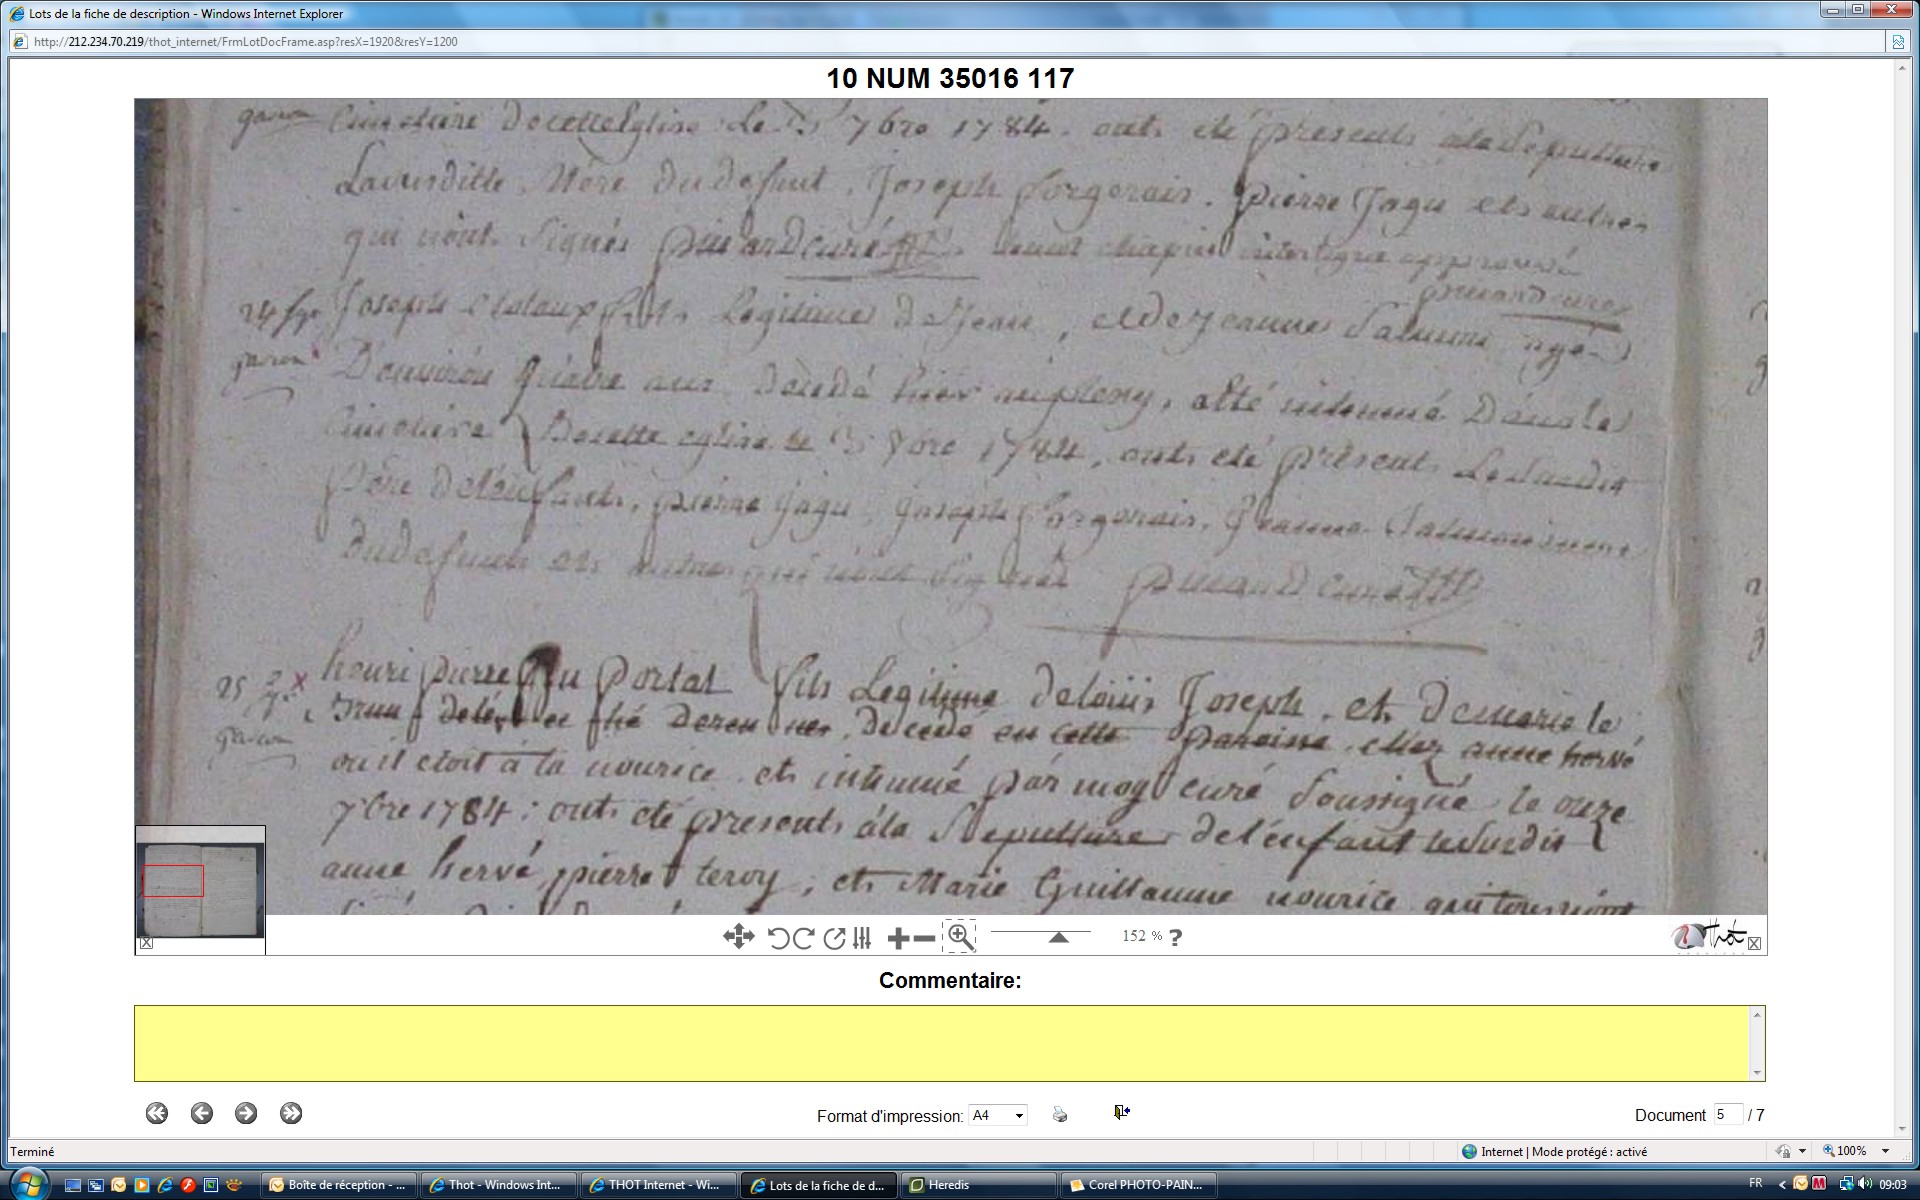 Lots de la fiche de description - Windows Internet Explorer
http://212.234.70.219/thot_internet/FrmLotDocFrame.asp?resX=1920&resY=1200
10 NUM 35016 117
garcon Cimetiere de cette Eglise Le 7bre 1784. onts été presents a la Sepulture
La Mere du defunt, Joseph Forgerais, pierre Jagu ets autres
qui n'ont Signés curé approuvé
24 Joseph fils Legitime de Jean, et de jeanne Salmon agé
garcon D'environ quatre ans décédé hier, a été inhumé Dans le
Cimetiere De cette eglise le 3 7bre 1784, onts été présents Le Susdit
Père de l'enfants, pierre Jagu, Joseph Forgerais, Jeanne Salmon mere
du defunt ets autres qui n'ont Signés curé
25 henri pierre Du portal fils Legitime de loüis Joseph, ets De marie le
Brun de rennes, decedé en cette paroisse, chez anne hervé
garcon ou il etoit à la nourice, ets inhumé par moy curé Soussigné le onze
7bre 1784; onts été presents à la Sepulture de l'enfant
anne hervé, pierre, ets Marie Guillaume nourice
152 % ?
Thot
Commentaire:
Format d'impression: A4
Document 5 / 7
Terminé
Internet | Mode protégé : activé
100%
Boîte de réception - ...
Thot - Windows Int...
THOT Internet - Wi...
Lots de la fiche de d...
Heredis
Corel PHOTO-PAIN...
FR
09:03